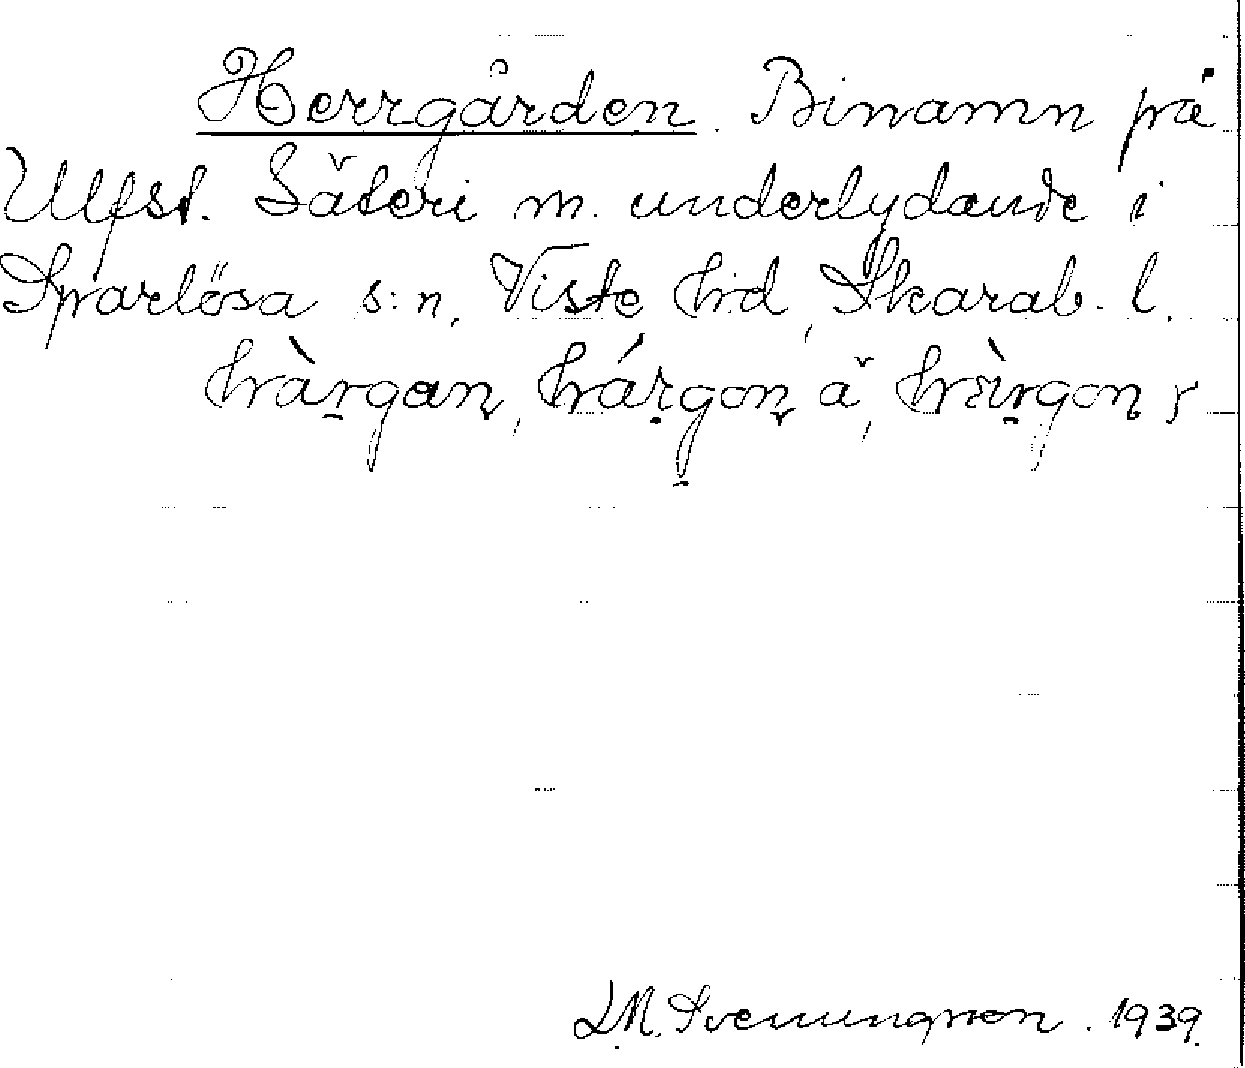 Herrgården. Binamn på
Ulfst. Säteri m. underlydande i
Sparlösa s:n, Viste hrd, Skarab. l.
hàrgan, hárgon ä,
L.M. Svenungsson. 1939.